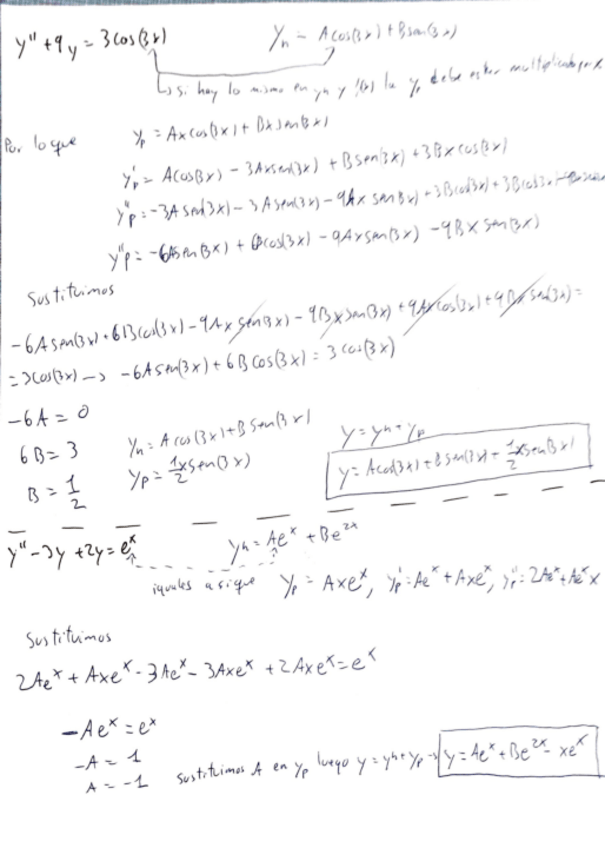 y'' + 9y = 3cos(3x)   yh = Acos(3x) + Bsen(3x)
↳ si hay lo mismo en yh y f(x) la yp debe estar multiplicado por x
Por lo que   yp = Axcos(3x) + Bxsen(3x)
y'p = Acos(3x) - 3Axsen(3x) + Bsen(3x) + 3Bxcos(3x)
y''p = -3Asen(3x) - 3Asen(3x) - 9Ax sen(3x) + 3Bcos(3x) + 3Bcos(3x)
y''p = -6Asen(3x) + 6Bcos(3x) - 9Axsen(3x) - 9Bxsen(3x)
Sustituimos
-6Asen(3x) + 6Bcos(3x) - 9Axsen(3x) - 9Bxsen(3x) + 9Axcos(3x) + 9Bxsen(3x) =
= 3cos(3x) → -6Asen(3x) + 6Bcos(3x) = 3cos(3x)
-6A = 0
6B = 3   yh = Acos(3x) + Bsen(3x)   y = yh + yp
B = 1/2   yp = 1/2 xsen(3x)   y = Acos(3x) + Bsen(3x) + 1/2 xsen(3x)
y'' - 3y + 2y = e^x   yh = Ae^x + Be^2x
iguales asique   yp = Axe^x, y'p = Ae^x + Axe^x, y''p = 2Ae^x + Ae^x x
Sustituimos
2Ae^x + Axe^x - 3Ae^x - 3Axe^x + 2Axe^x = e^x
-Ae^x = e^x
-A = 1
A = -1   sustituimos A en yp luego y = yh + yp → y = Ae^x + Be^2x - xe^x